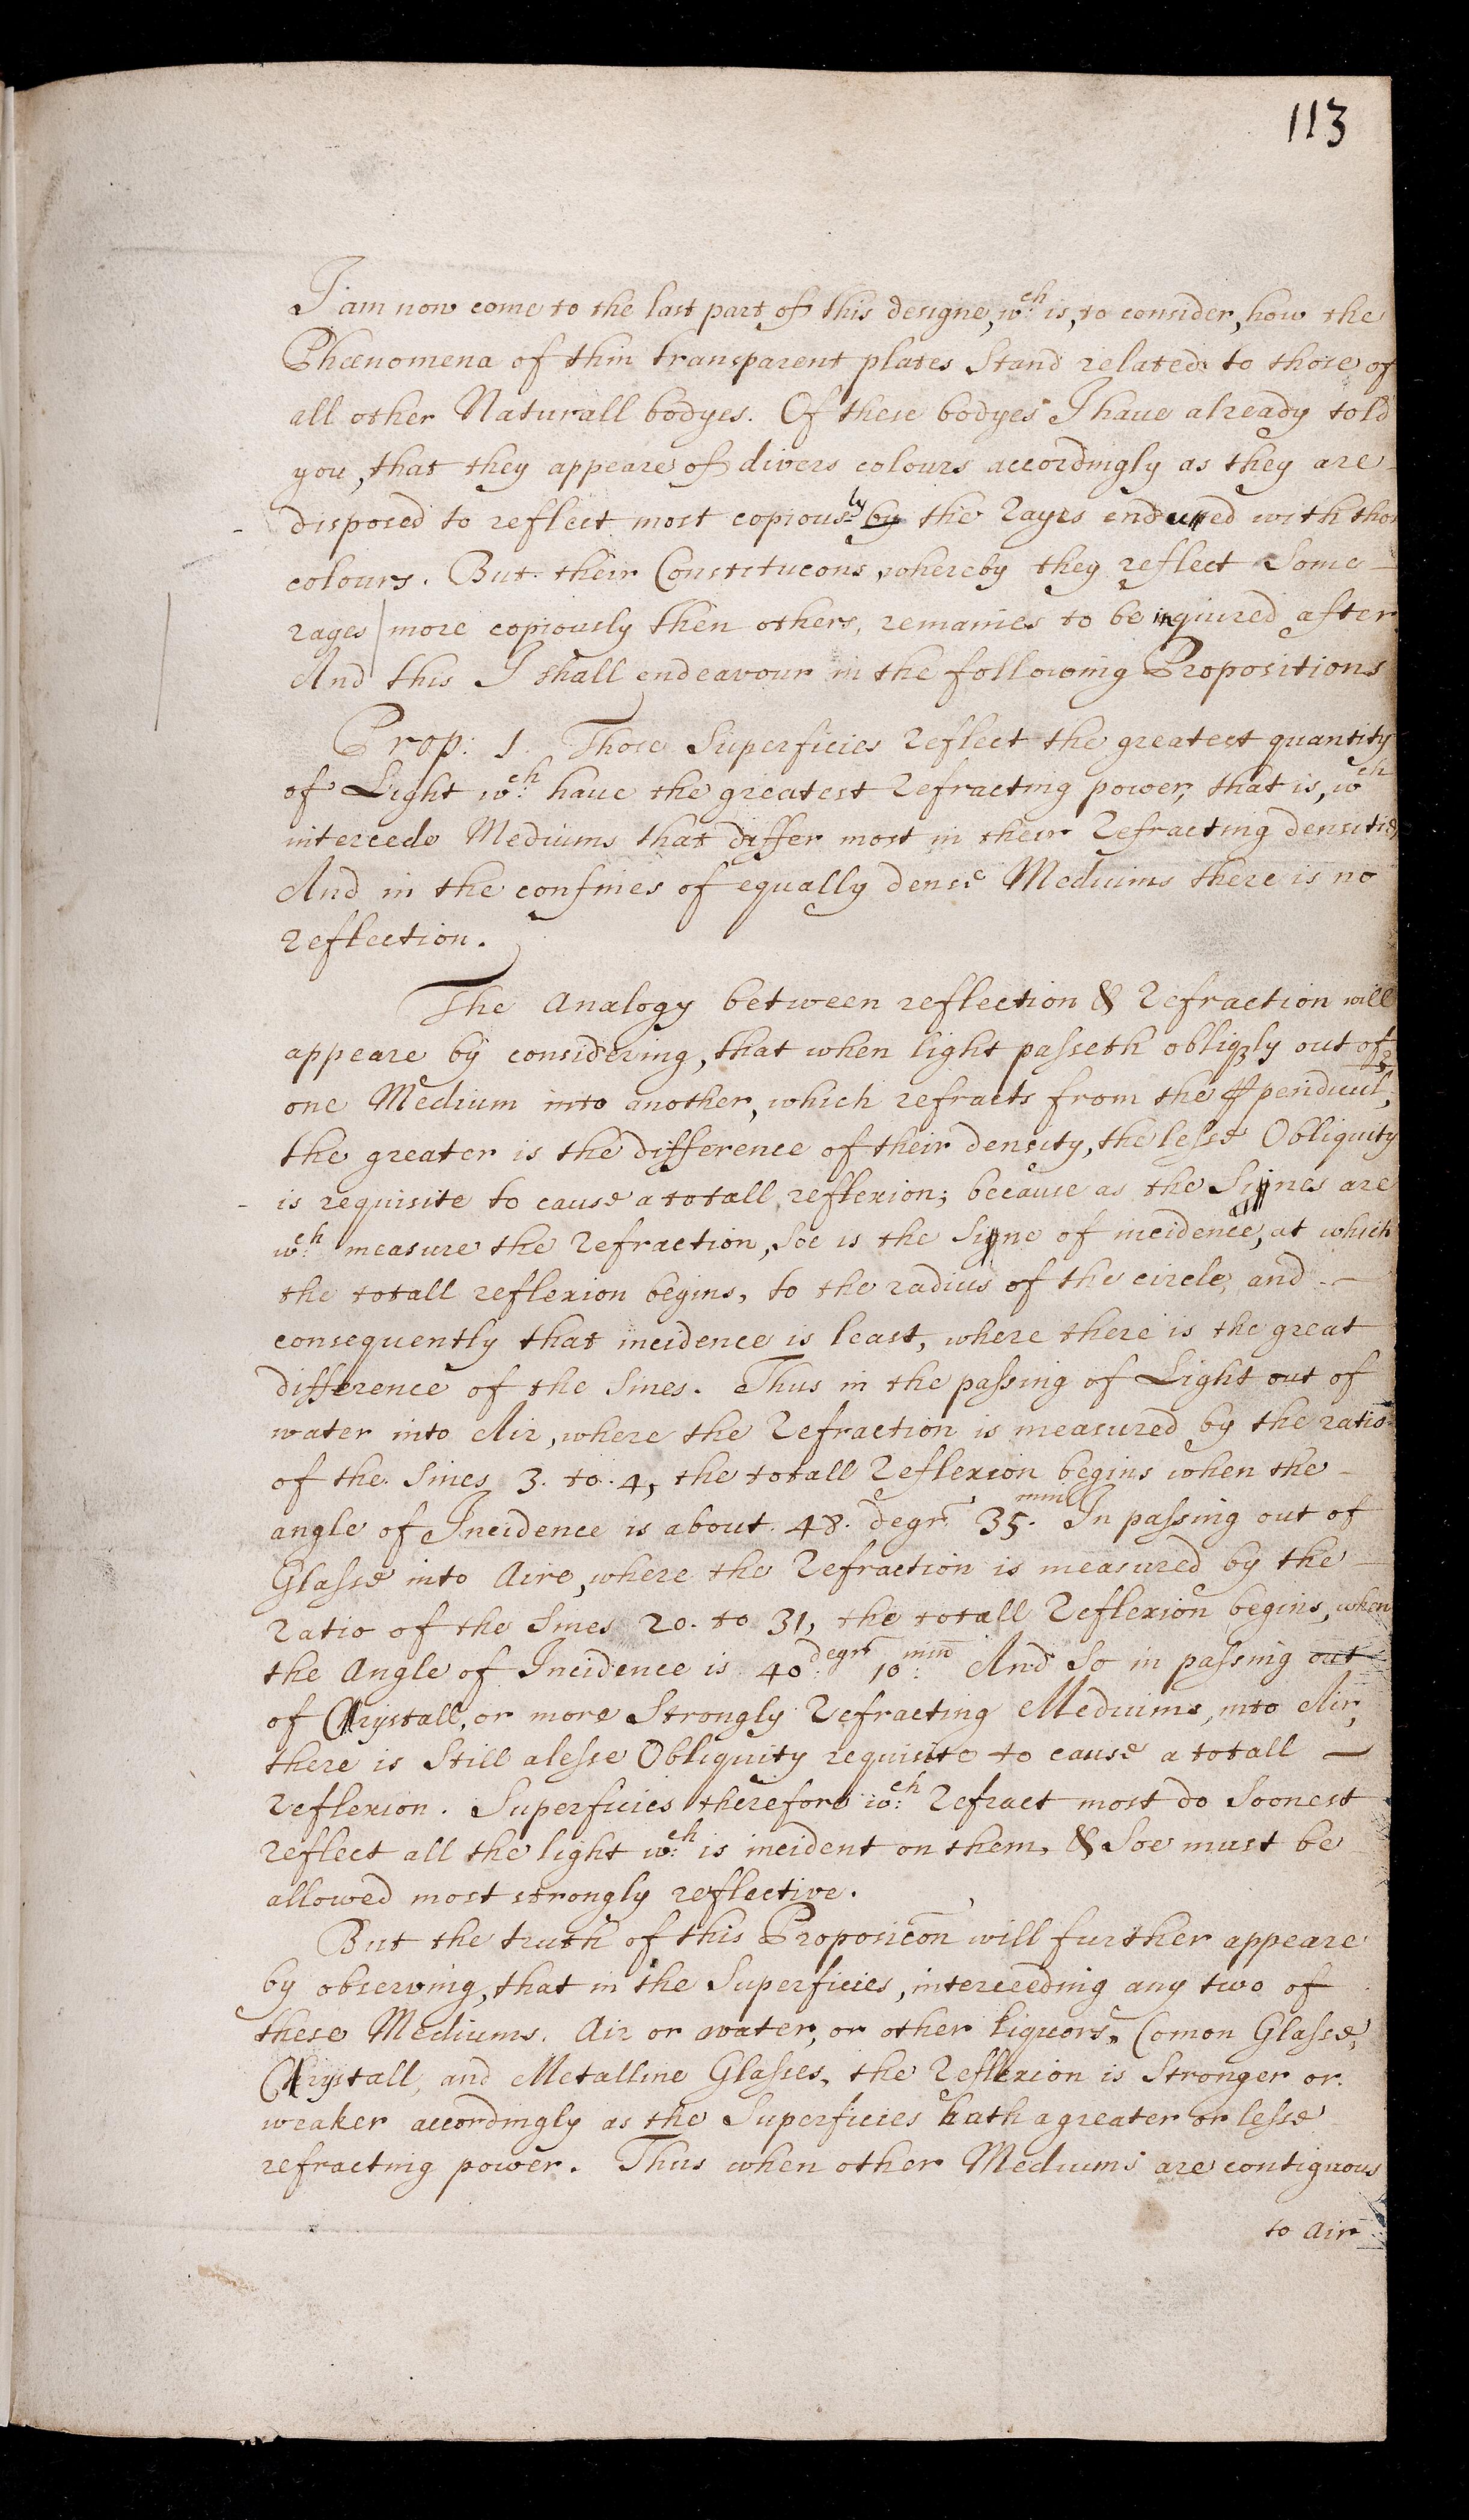 113
I am now come to the last part of this designe, wch is, to consider, how the
Phænomena of thin transparent plates Stand related to those of
all other Naturall bodyes. Of these bodyes I have already told
you, that they appeare of divers colours accordingly as they are
disposed to reflect most copiously by the Rayes endued with those
colours. But their Constitucons whereby they reflect Some
rayes more copiously then others, remaines to be inquired after.
And this I shall endeavour in the following Propositions
Prop: 1. Those Superficies Reflect the greatest quantity
of Light wch: have the greatest Refracting power, that is, wch
intercede Mediums that differ most in their Refracting densities
And in the confines of equally dense Mediums there is no
Reflection.
The Analogy between reflection & Refraction will
appeare by considering, that when light passeth obliqly out of
one Medium into another, which refracts from the ppendicul,
the greater is the difference of their density, the lesse Obliquity
is requisite to cause a totall reflexion; because as the Sines are
wch: measure the Refraction, Soe is the Sine of incidence, at which
the totall reflexion begins, to the radius of the circle, and
consequently that incidence is least, where there is the great
difference of the Sines. Thus in the passing of Light out of
water into Air, where the Refraction is measured by the ratio
of the Sines 3. to 4, the totall Reflexion begins when the
angle of Incidence is about 48. degr 35. min In passing out of
Glasse into Aire, where the Refraction is measured by the
Ratio of the Sines 20. to 31, the totall Reflexion begins, when
the Angle of Incidence is 40 degr 10 min And So in passing out
of Crystall, or more Strongly Refracting Mediums, into Air,
there is Still a lesse Obliquity requisite to cause a totall
Reflexion. Superficies therefore wch: Refract most do Soonest
reflect all the light wch: is incident on them, & Soe must be
allowed most strongly reflective.
But the truth of this Proposicōn will further appeare
by observing, that in the Superficies, interceeding any two of
these Mediums. Air or water, or other liquors, Comon Glasse,
Crystall, and Metalline Glasses, the Reflexion is Stronger or
weaker accordingly as the Superficies hath a greater or lesse
refracting power. Thus when other Mediums are contiguous
to Air